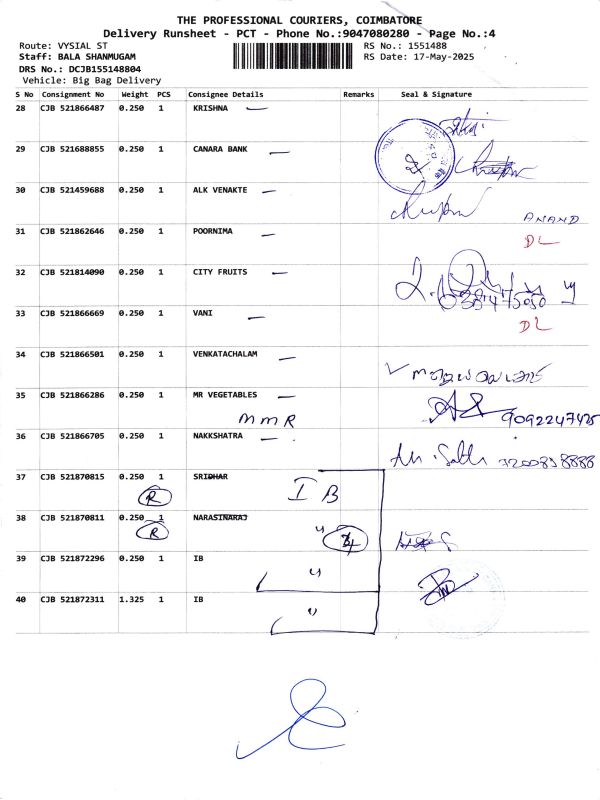 THE PROFESSIONAL COURIERS, COIMBATORE
Delivery Runsheet - PCT - Phone No.:9047080280 - Page No.:4
Route: VYSIAL ST RS No.: 1551488
Staff: BALA SHANMUGAM RS Date: 17-May-2025
DRS No.: DCJB155148804
Vehicle: Big Bag Delivery
S No Consignment No Weight PCS Consignee Details Remarks Seal & Signature
28 CJB 521866487 0.250 1 KRISHNA
29 CJB 521688855 0.250 1 CANARA BANK
30 CJB 521459688 0.250 1 ALK VENAKTE
ANAND
31 CJB 521862646 0.250 1 POORNIMA
DL
32 CJB 521814090 0.250 1 CITY FRUITS
33 CJB 521866669 0.250 1 VANI
DL
34 CJB 521866501 0.250 1 VENKATACHALAM
35 CJB 521866286 0.250 1 MR VEGETABLES
MMR 9092247425
36 CJB 521866705 0.250 1 NAKKSHATRA
37 CJB 521870815 0.250 1 SRIDHAR
R IB
38 CJB 521870811 0.250 1 NARASINARAJ
R "
39 CJB 521872296 0.250 1 IB
"
40 CJB 521872311 1.325 1 IB
"